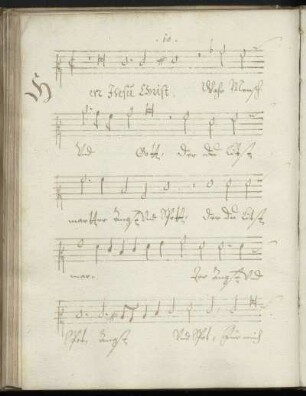 10.
Herr Jesu Christ, Wahr Mensch
Und Gott, der du Littst
martter Angst Und Spott, der du Littst
mar. ter Angst Und
Spot, Angst Und Spot, für mich